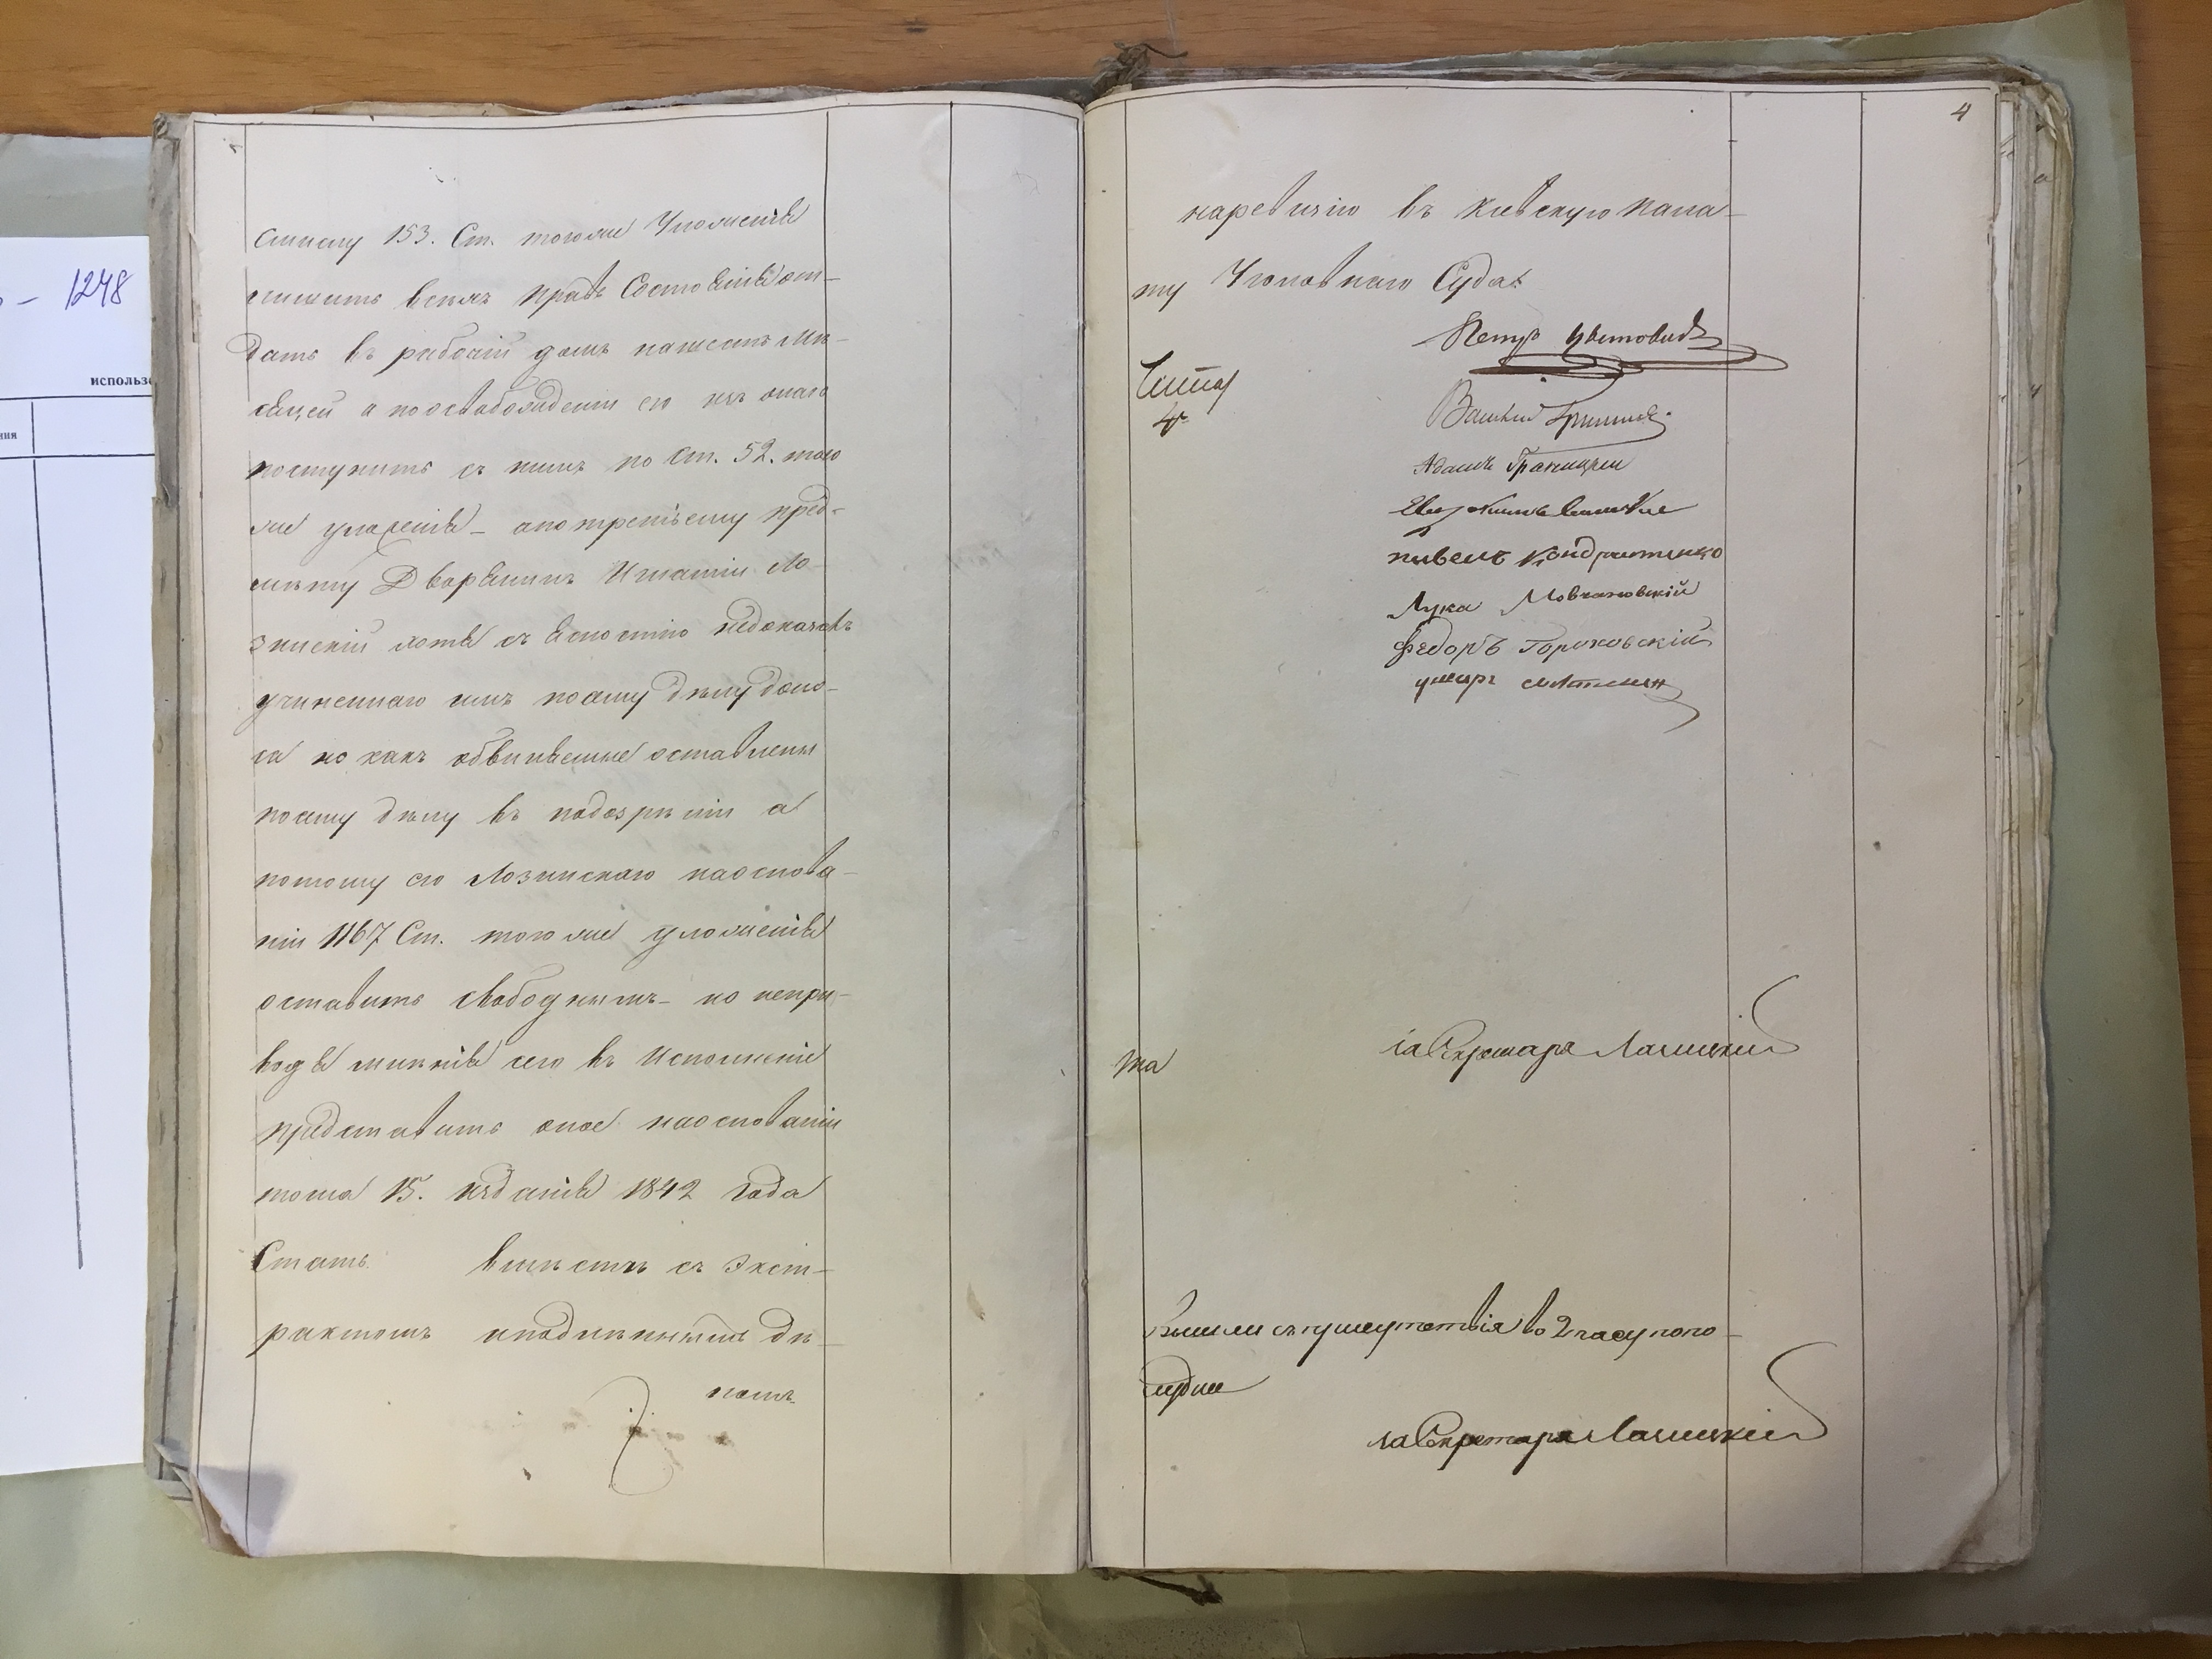 1248
использ
ния
смыслу 153. Ст. тогоже Уложенія
лишить всѣхъ правъ Состоянія от-
дать въ рабочій домъ на шесть мѣ-
сяцей а по освобожденіи его изъ онаго
поступить съ нимъ по ст. 52. того
же уложенія – а по третьему пред-
мѣту Дворянинъ Игнатій Ло-
зинскій хотя съ ясностію недоказалъ
учиненнаго имъ по сему дѣлу доно-
са но какъ обвиняемые оставлены
по сему дѣлу въ подозрѣніи а
потому его Лозинскаго на основа-
ніи 1167 Ст. того же уложенія
оставить свободнымъ – но непри-
водя мнѣнія сего въ Исполненіе
представить оное на основаніи
тома 15. изданія 1842 года
Стать. вмѣстѣ съ экст-
рактомъ и подлиннымъ дѣ-
ломъ
4
на ревизію въ Кіевскую пала-
ту Уголовнаго Суда
Петръ
Адамъ
павелъ Кондратенко
Лука Мовчановскій
Федоръ Гороховскій
за Секретаря
та
Вышли съ присутствія во 2 часу попо-
лудни
за Секретаря